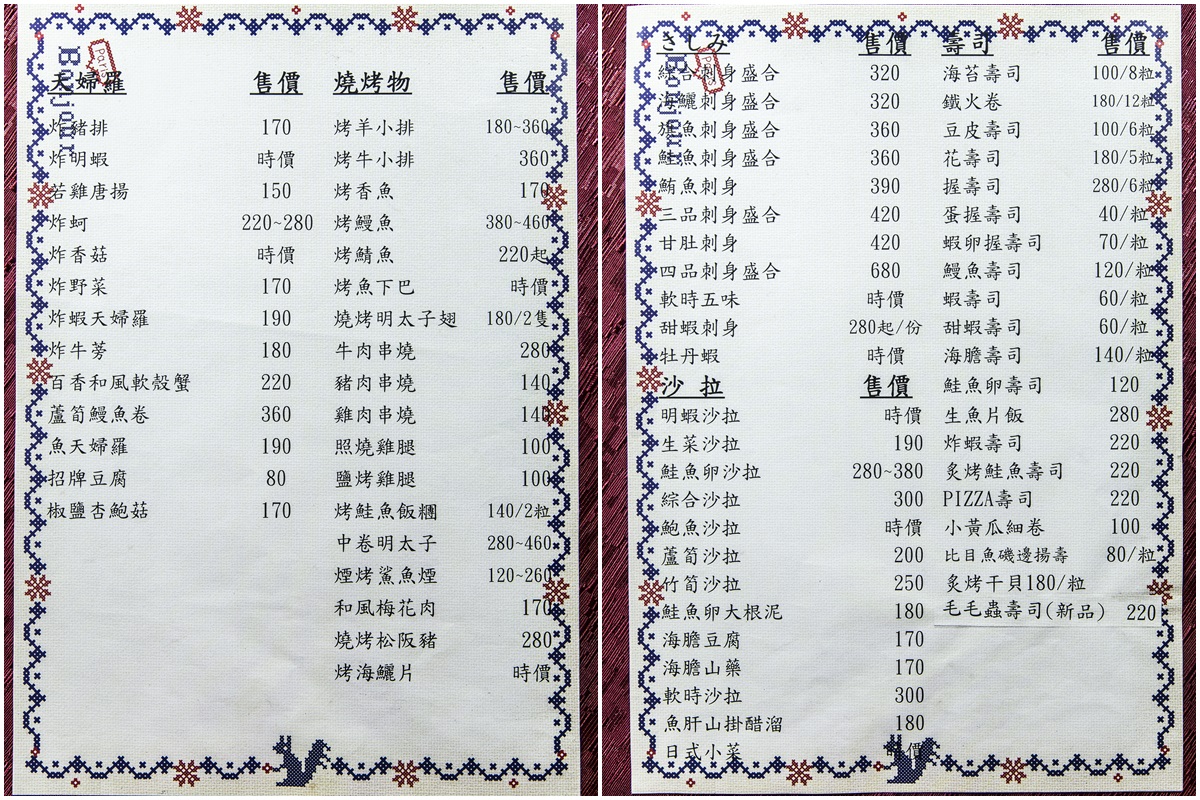 Bonjour
Paris
天婦羅 售價 燒烤物 售價
炸豬排 170 烤羊小排 180~360
炸明蝦 時價 烤牛小排 360
若雞唐揚 150 烤香魚 170
炸蚵 220~280 烤鰻魚 380~460
炸香菇 時價 烤鯖魚 220起
炸野菜 170 烤魚下巴 時價
炸蝦天婦羅 190 燒烤明太子翅 180/2隻
炸牛蒡 180 牛肉串燒 280
百香和風軟殼蟹 220 豬肉串燒 140
蘆筍鰻魚卷 360 雞肉串燒 140
魚天婦羅 190 照燒雞腿 100
招牌豆腐 80 鹽烤雞腿 100
椒鹽杏鮑菇 170 烤鮭魚飯糰 140/2粒
中卷明太子 280~460
煙烤鯊魚煙 120~260
和風梅花肉 170
燒烤松阪豬 280
烤海鱺片 時價
Bonjour
Paris
さしみ 售價 壽司 售價
綜合刺身盛合 320 海苔壽司 100/8粒
海鱺刺身盛合 320 鐵火卷 180/12粒
旗魚刺身盛合 360 豆皮壽司 100/6粒
鮭魚刺身盛合 360 花壽司 180/5粒
鮪魚刺身 390 握壽司 280/6粒
三品刺身盛合 420 蛋握壽司 40/粒
甘肚刺身 420 蝦卵握壽司 70/粒
四品刺身盛合 680 鰻魚壽司 120/粒
軟時五味 時價 蝦壽司 60/粒
甜蝦刺身 280起/份 甜蝦壽司 60/粒
牡丹蝦 時價 海膽壽司 140/粒
沙拉 售價 鮭魚卵壽司 120
明蝦沙拉 時價 生魚片飯 280
生菜沙拉 190 炸蝦壽司 220
鮭魚卵沙拉 280~380 炙烤鮭魚壽司 220
綜合沙拉 300 PIZZA壽司 220
鮑魚沙拉 時價 小黃瓜細卷 100
蘆筍沙拉 200 比目魚磯邊揚壽 80/粒
竹筍沙拉 250 炙烤干貝180/粒
鮭魚卵大根泥 180 毛毛蟲壽司(新品) 220
海膽豆腐 170
海膽山藥 170
軟時沙拉 300
魚肝山掛醋溜 180
日式小菜 時價